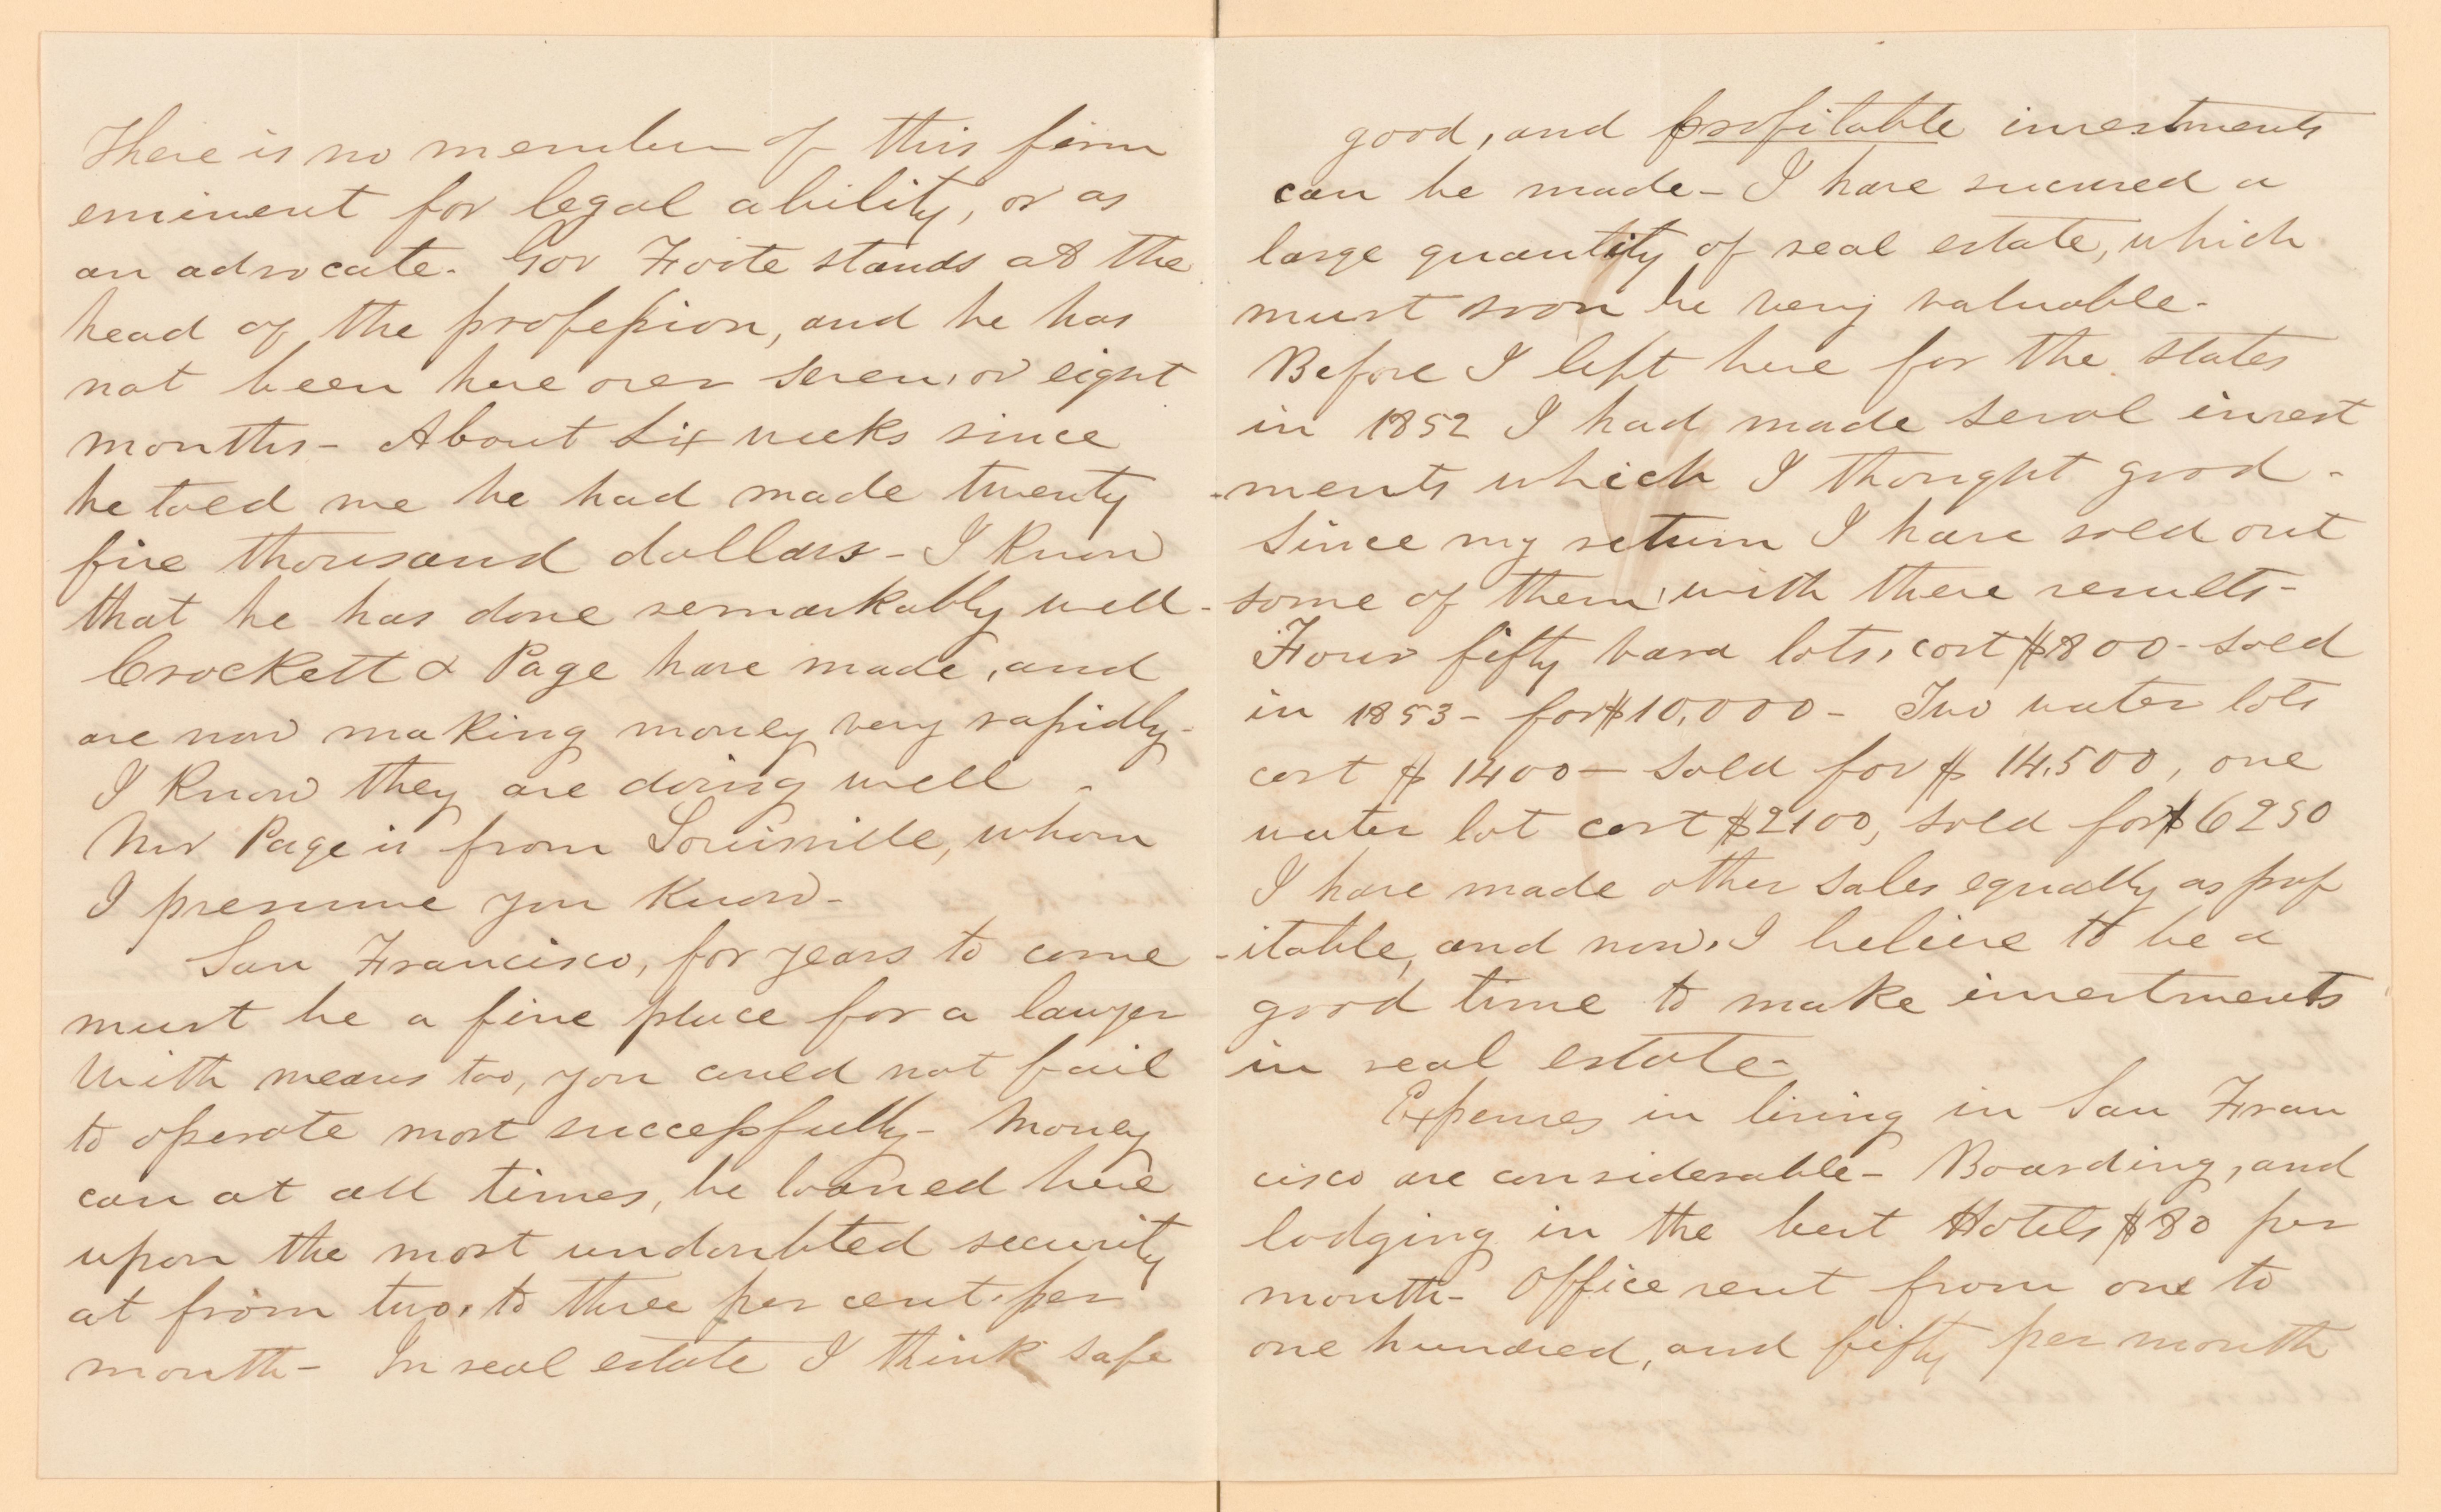 There is no member of this firm
eminent for legal ability, or as
an advocate. Gov Foote stands at the
head of the profession, and he has
not been here over seven, or eight
months - About Six weeks since
he told me he had made twenty
five thousand dollars - I Know
that he has done remarkably well -
Crockett & Page have made, and
are now making money very rapidly -
I Know they are doing well -
Mr Page is from Louisville, whom
I presume you Know -
San Francisco, for years to come
must be a fine place for a lawyer
With means too, you could not fail
to operate most successfully - Money
can at all times, be loaned here
upon the most undoubted security
at from two, to three per cent. per
month - In real estate I think safe
good, and profitable investments
can be made - I have secured a
large quantity of real estate, which
must soon be very valuable -
Before I left here for the States
in 1852 I had made sevral invest
-ments which I thought good -
Since my return I have sold out
some of them, with these results -
Four fifty vara lots, cost $800 - sold
in 1853 - for $10,000 - Two water lots
cost $1400 - sold for $14,500, one
water lot cost $2100, sold for $6250
I have made other sales equally as prof
-itable, and now, I believe to be a
good time to make investments
in real estate -
Expenses in living in San Fran
cisco are considerable - Boarding, and
lodging in the best Hotels $80 per
month - Office rent from one to
one hundred, and fifty per month